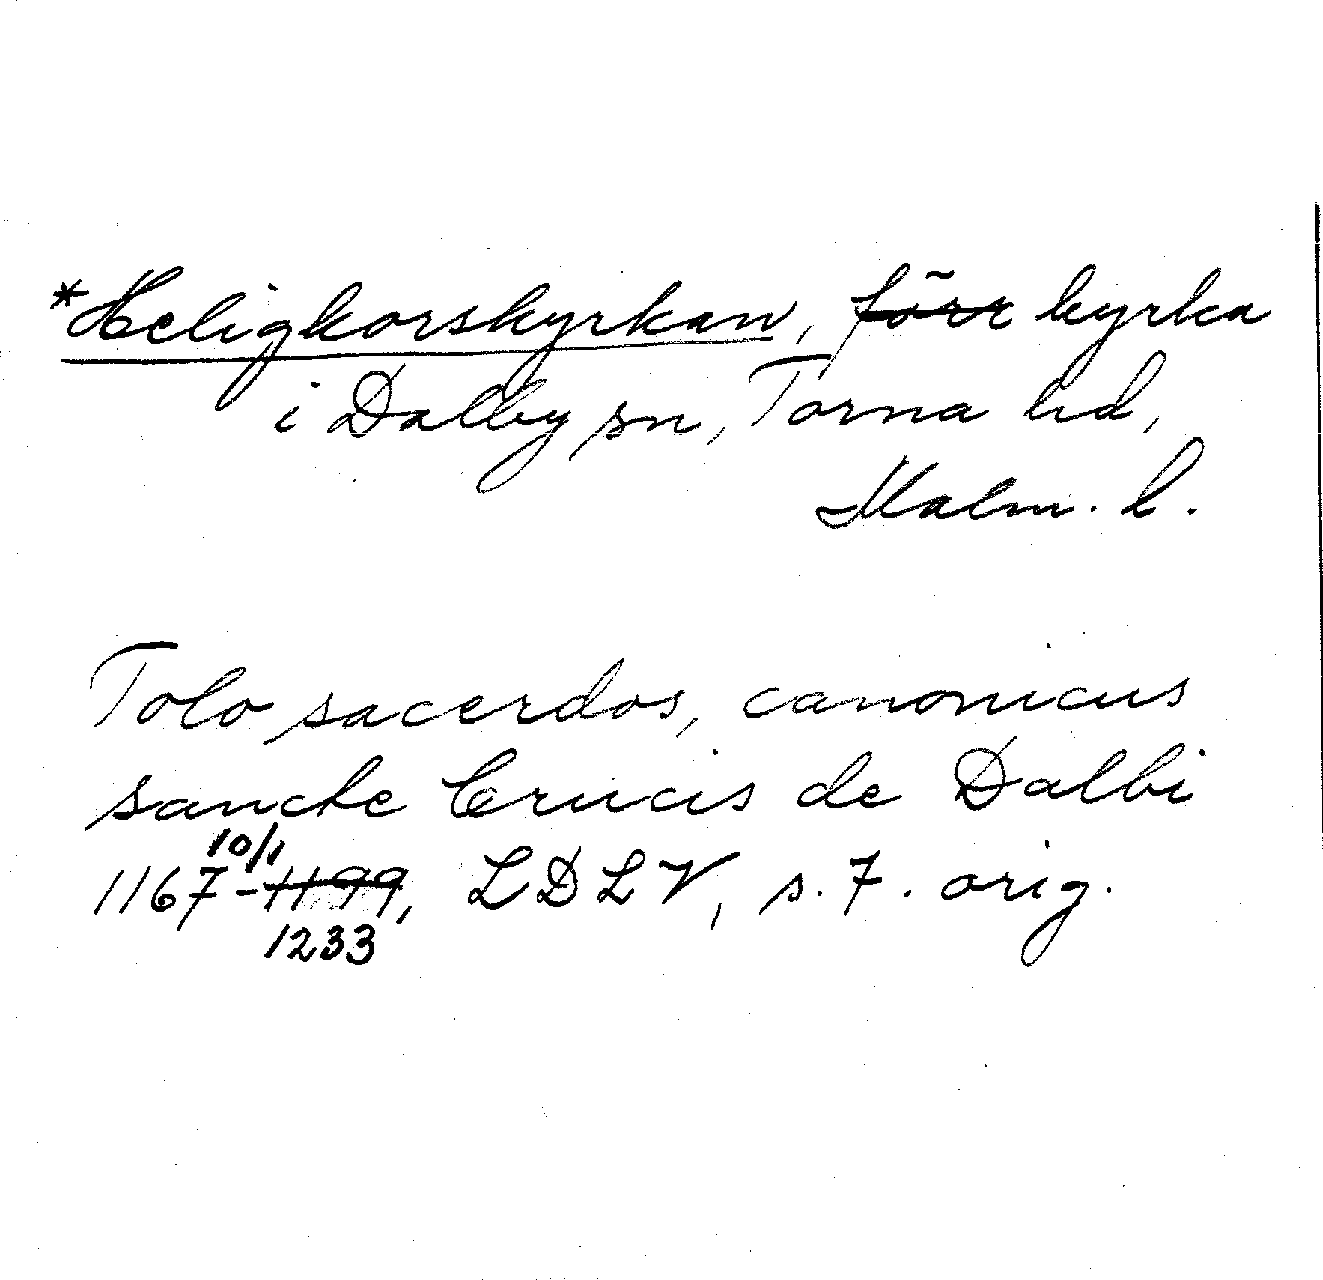 *Heligkorskyrkan, förr kyrka
i Dalby sn, Torna hd,
Malm. l.
Tolo sacerdos, canonicus
sancte Crucis de Dalbi
10/1
1167-1199, LDLV, s. 7. orig.
1233